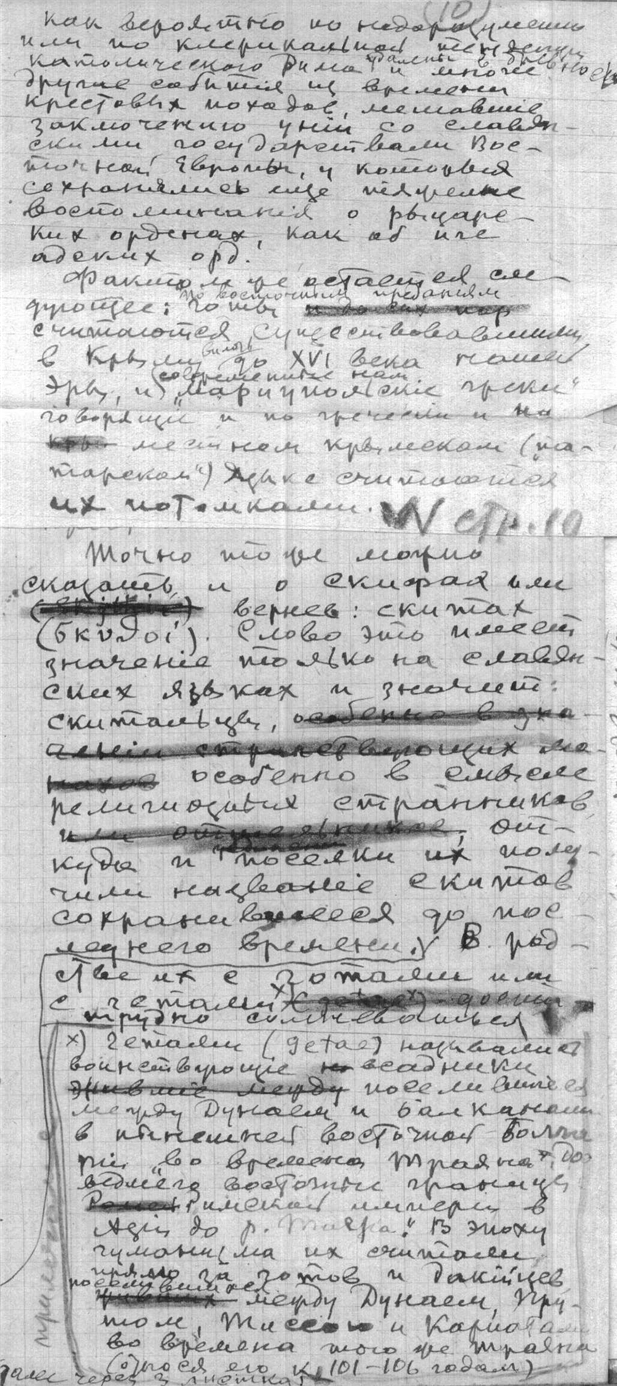 (10)
как вероятно по недоразумению
или по клерикальной тенденции
католического Рима и многие
другие события из времени
крестовых походов, мешавшие
заключению уніи со славян-
скими государствами Вос-
точной Европы, у которых
сохранялись еще тяжелые
воспоминанія о рыцарс-
ких орденах, как об
адских орд.
Фактом же остается сле-
дующее: по восточным преданіям
готы и до сих пор
считаются существовавшими
в Крыму вплоть до XVI века нашей
Эры, и современные нам „Маріупольскіе греки"
говорящіе и по гречески и на
местном крымском („та-
тарском") языке считаются
их потомками. стр. 10
Точно то же можно
сказать и о скифах или
вернее: скитах
(Σκυθοί). Слово это имеет
значеніе только на славян-
ских языках и значит:
скитальцы, особенно в зна-
ченіи странствующих мо-
нахов особенно в смысле
религиозных странников,
или отшельников, от-
куда и поселки их полу-
чили названіе скитов
сохранившееся до пос-
леднего времени. В род-
стве их с готами или
с гетами x) (getae)
трудно сомневаться
x) Гетами (getae) назывались
воинствующіе всадники
жившіе между поселившіеся
между Дунаем и Балканами
в нынешней восточной Болга-
ріи „во времена Траяна",
ведшего восточные границы
Римской имперіи в
Азіи до р. Тигра." В эпоху
гуманизма их считали
прямо за готов и Дакійцев,
поселившихся
живших между Дунаем, Пру-
том, Тиссою и Карпатами
во времена того же Траяна
(относя его к 101–106 годам)
Далее через 3 листка
примечание